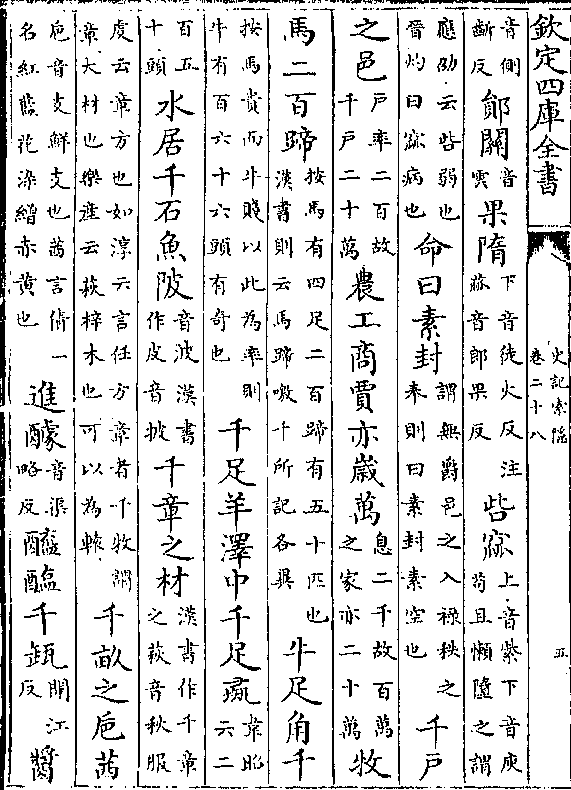 欽定四庫全書
史記索隱
卷二十八
五
音側斷反鄖關音雲果隋下音徒火反注蓏音郎果反呰窳上音紫下音庾苟且懶隨之謂
應劭云呰弱也晉灼曰窳病也命曰素封謂無爵邑之入祿秩之奉則曰素封素空也千戶
之邑戶率二百故千戶二十萬農工商賈亦歲萬息二千故百萬之家亦二十萬牧
馬二百蹄按馬有四足二百蹄有五十匹也漢書則云馬蹄噭千所記各異牛足角千
按馬貴而牛賤以此為率則牛有百六十六頭有奇也千足羊澤中千足彘韋昭六二
百五十頭水居千石魚陂音波漢書作皮音披千章之材漢書作千章之萩音秋服
虔云章方也如淳云言任方章者千枚謂章大材也樂產云萩梓木也可以為轅千畝之卮茜
卮音支鮮支也茜言倩一名紅藍花染繒赤黃也進醵音渠略反醯醢千瓨閒江反醬